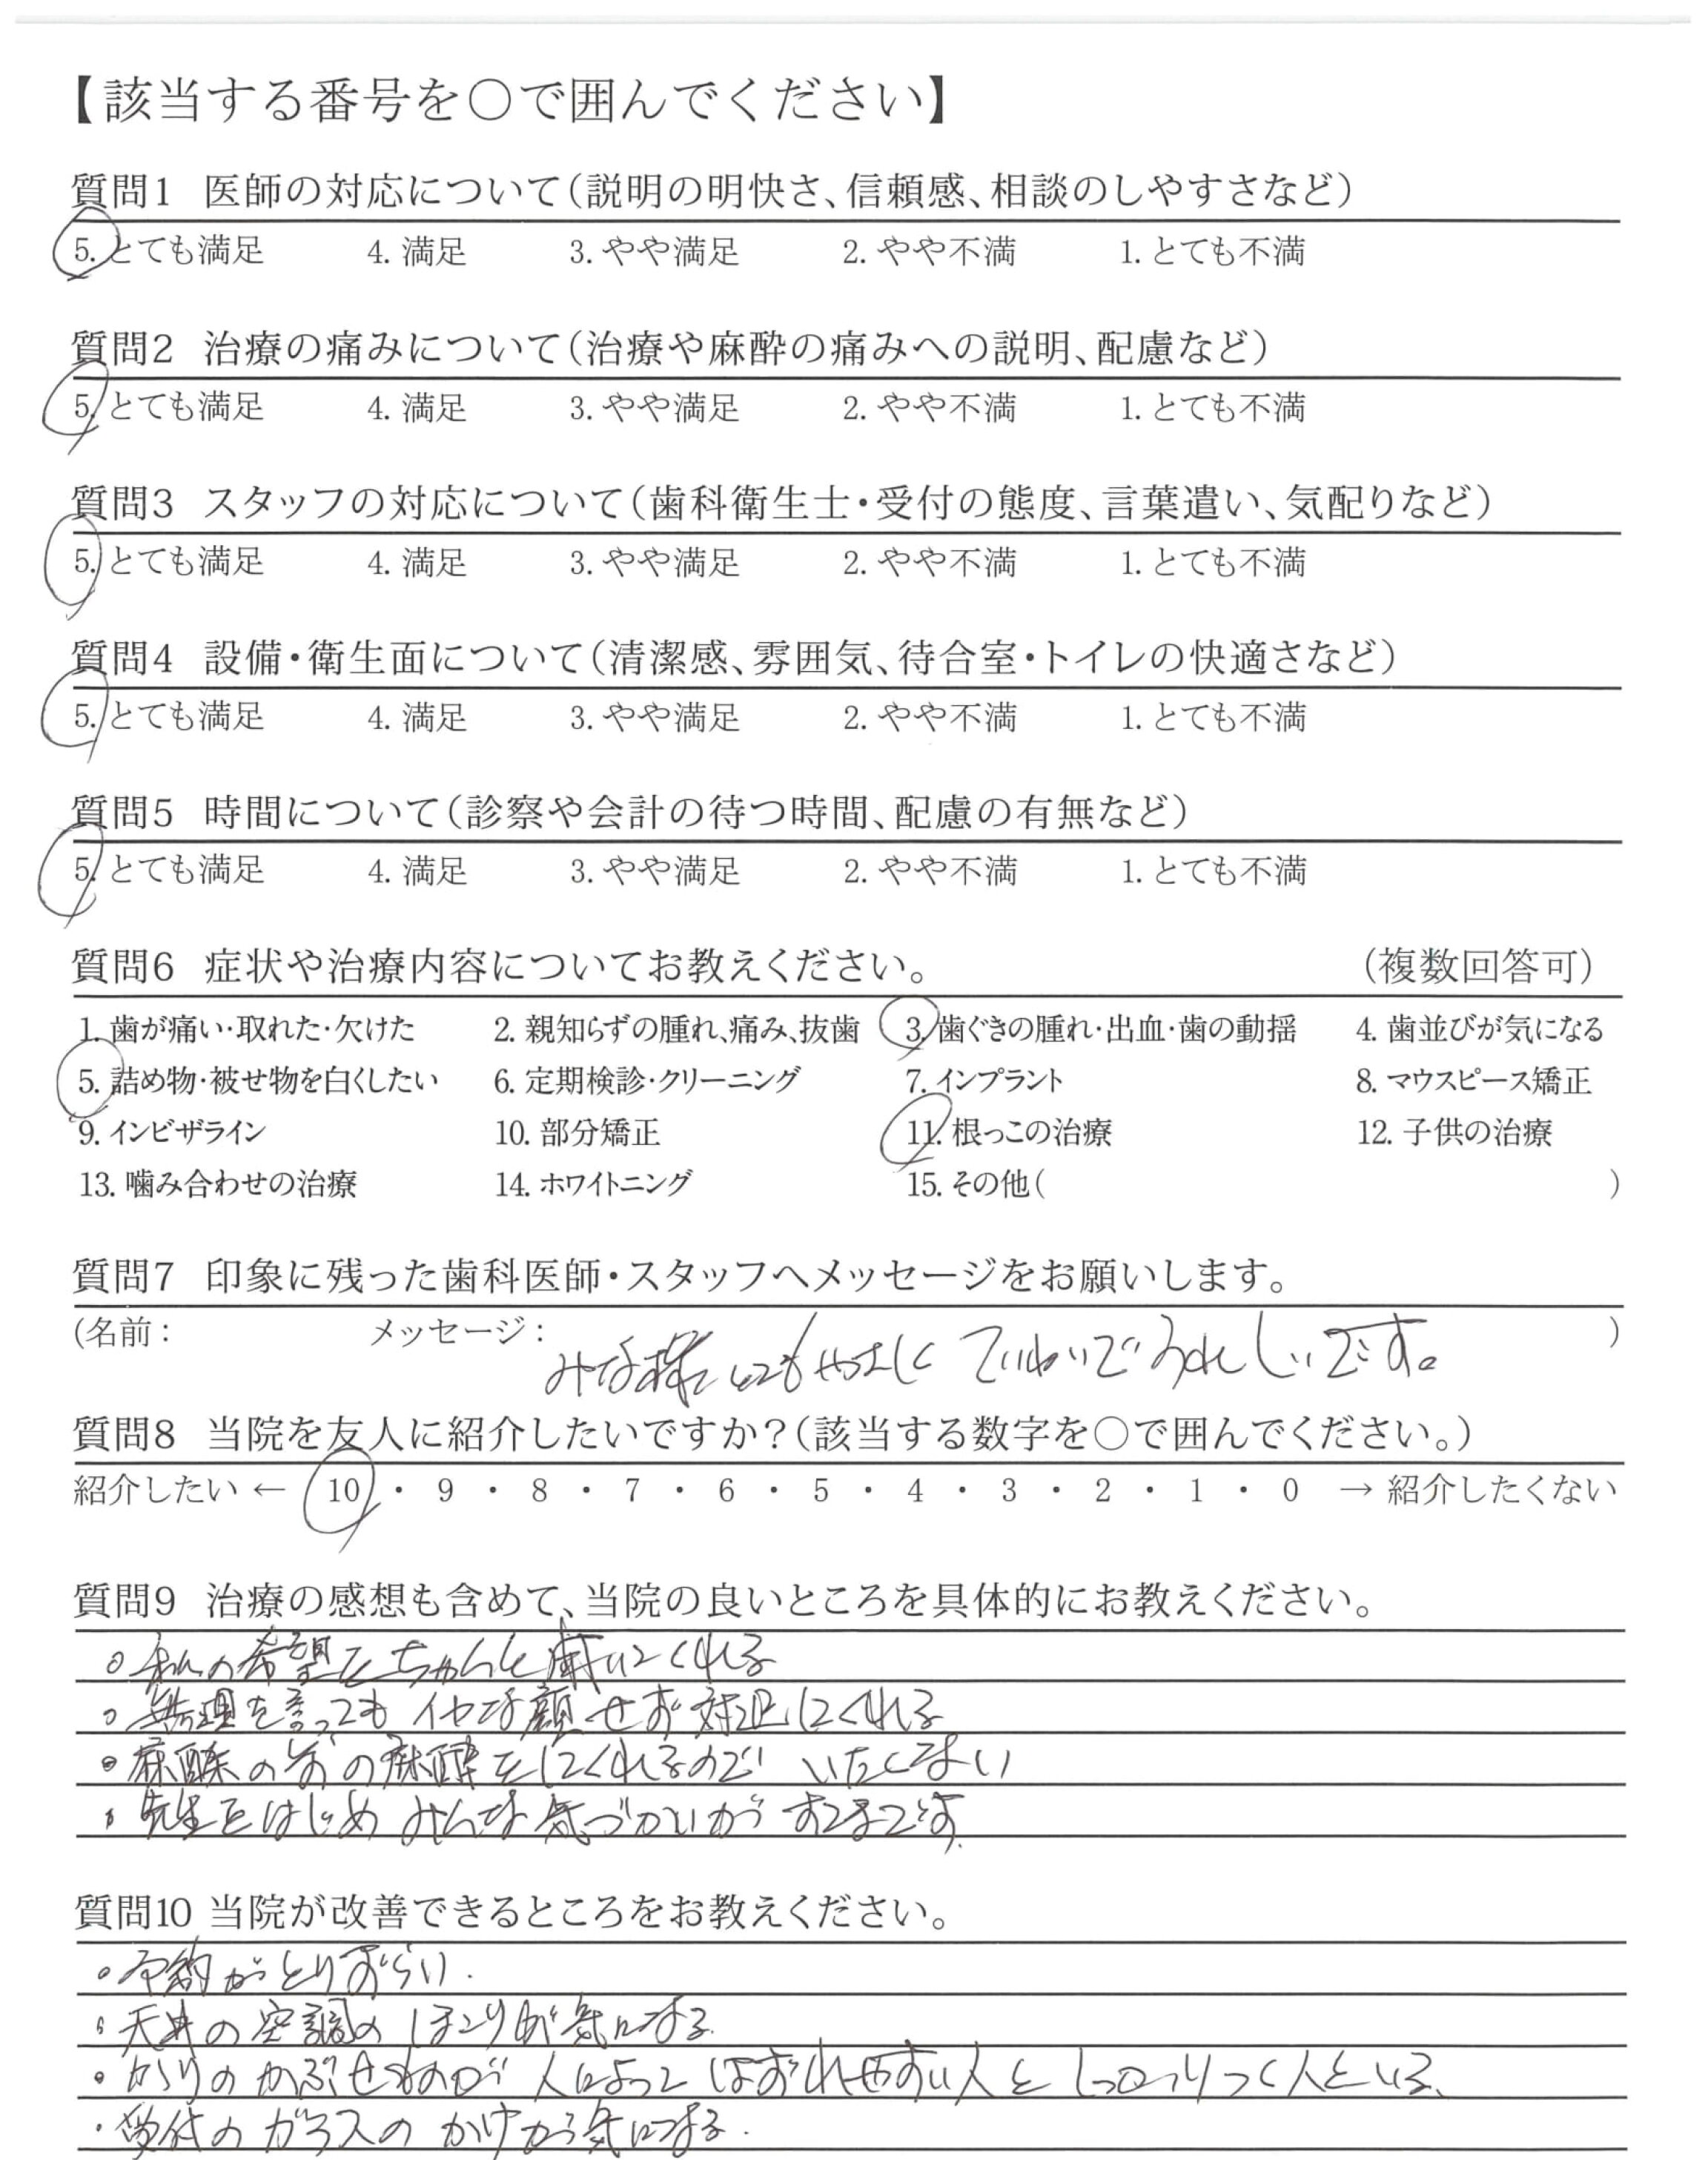 【該当する番号を○で囲んでください】
質問1 医師の対応について(説明の明快さ、信頼感、相談のしやすさなど)
5. とても満足 4. 満足 3. やや満足 2. やや不満 1. とても不満
質問2 治療の痛みについて(治療や麻酔の痛みへの説明、配慮など)
5. とても満足 4. 満足 3. やや満足 2. やや不満 1. とても不満
質問3 スタッフの対応について(歯科衛生士・受付の態度、言葉遣い、気配りなど)
5. とても満足 4. 満足 3. やや満足 2. やや不満 1. とても不満
質問4 設備・衛生面について(清潔感、雰囲気、待合室・トイレの快適さなど)
5. とても満足 4. 満足 3. やや満足 2. やや不満 1. とても不満
質問5 時間について(診察や会計の待つ時間、配慮の有無など)
5. とても満足 4. 満足 3. やや満足 2. やや不満 1. とても不満
質問6 症状や治療内容についてお教えください。 (複数回答可)
1. 歯が痛い・取れた・欠けた 2. 親知らずの腫れ、痛み、抜歯 3. 歯ぐきの腫れ・出血・歯の動揺 4. 歯並びが気になる
5. 詰め物・被せ物を白くしたい 6. 定期検診・クリーニング 7. インプラント 8. マウスピース矯正
9. インビザライン 10. 部分矯正 11. 根っこの治療 12. 子供の治療
13. 噛み合わせの治療 14. ホワイトニング 15. その他( )
質問7 印象に残った歯科医師・スタッフへメッセージをお願いします。
(名前: メッセージ: みな様とてもやさしく ていねいでうれしいです。 )
質問8 当院を友人に紹介したいですか?(該当する数字を○で囲んでください。)
紹介したい ← 10 ・ 9 ・ 8 ・ 7 ・ 6 ・ 5 ・ 4 ・ 3 ・ 2 ・ 1 ・ 0 → 紹介したくない
質問9 治療の感想も含めて、当院の良いところを具体的にお教えください。
○ 私の希望をちゃんと聞いてくれる
○ 無理を言っても イヤな顔せず対処してくれる
○ 麻酔の前の麻酔をしてくれるので いたくない
・ 先生をはじめ みんな気づかいが すてきです。
質問10 当院が改善できるところをお教えください。
○ 予約がとりずらい.
○ 天井の空調の ほこりが気になる.
○ かりのかぶせものが 人によって はずれやすい人と しっかりつく人といる、
・ 受付のガラスの かけが気になる.